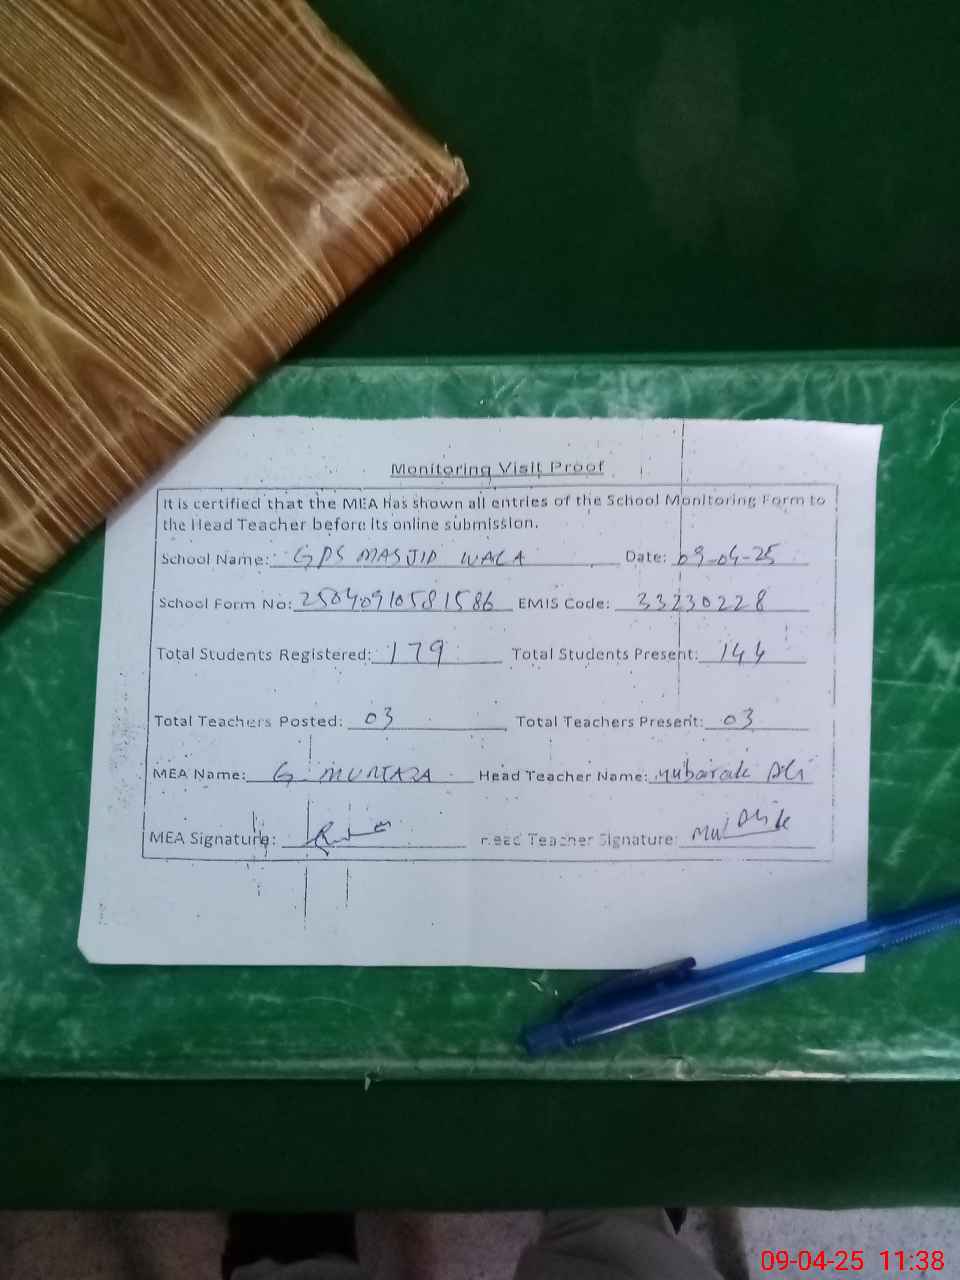 Monitoring Visit Proof
It is certified that the MEA has shown all entries of the School Monitoring Form to
the Head Teacher before its online submission.
School Name: GPS MASJID WALA Date: 09-04-25
School Form No: 2504091058 1586 EMIS Code: 33230228
Total Students Registered: 179 Total Students Present: 144
Total Teachers Posted: 03 Total Teachers Present: 03
MEA Name: G. MURTAZA Head Teacher Name: Mubarak Ali
MEA Signature: Head Teacher Signature:
09-04-25 11:38